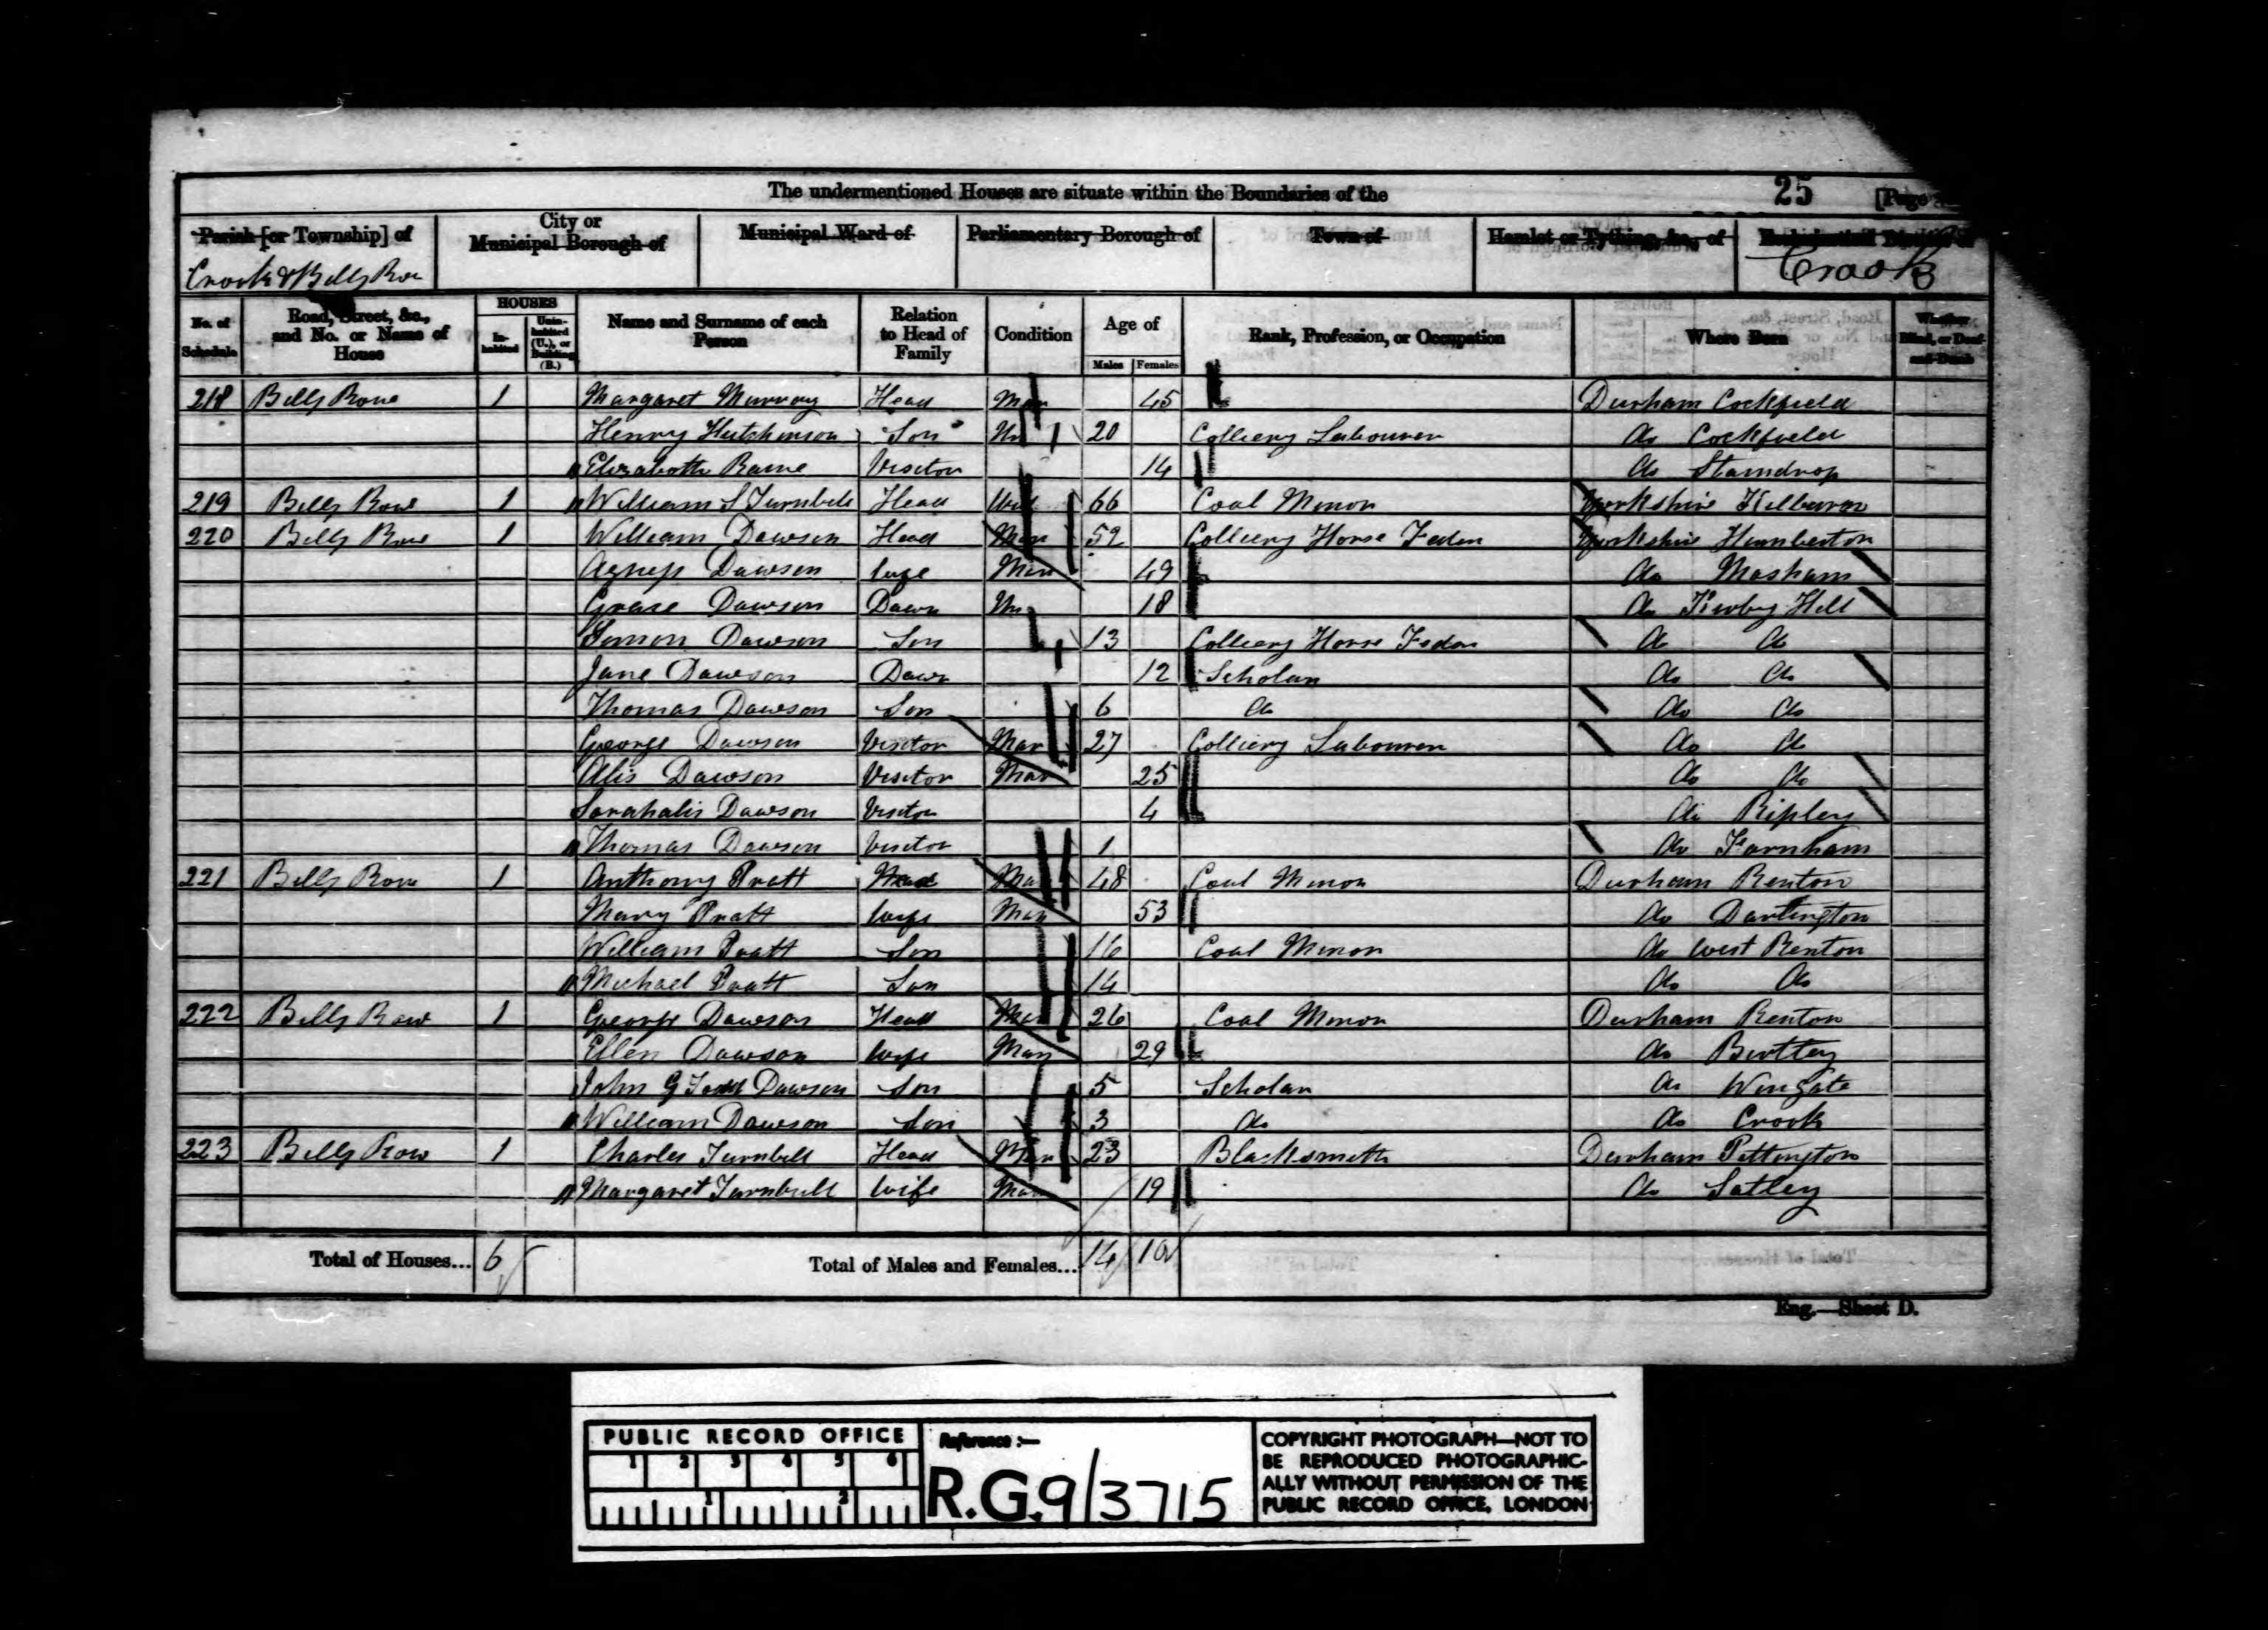 The undermentioned Houses are situate within the Boundaries of the 25 [Page
Parish [or Township] of City or Municipal Borough of Municipal Ward of Parliamentary Borough of Town of Hamlet or Tything, &c., of Ecclesiastical District of
Crook & Billy Row Crook
No. of Schedule Road, Street, &c., and No. or Name of House HOUSES Inhabited Uninhabited (U.), or Building (B.) Name and Surname of each Person Relation to Head of Family Condition Age of Males Females Rank, Profession, or Occupation Where Born Whether Blind, or Deaf-and-Dumb
218 Billy Rowe 1 Margaret Murray Head Mar 45 Durham Cockfield
Henry Hutchinson Son Un 20 Colliery Labourer do Cockfield
Elizabeth Raine Visitor 14 do Staindrop
219 Billy Row 1 William S Turnbull Head 66 Coal Minor Yorkshire Kilburn
220 Billy Row 1 William Dawson Head Mar 52 Colliery Horse Feder Yorkshire Humberton
Agness Dawson Wife Mar 49 do Masham
Grace Dawson Dawr Un 18 do Kirby Hill
Simon Dawson Son 13 Colliery Horse Feder do do
Jane Dawson Dawr 12 Scholar do do
Thomas Dawson Son 6 do do do
George Dawson Visitor Mar 27 Colliery Labourer do do
Alis Dawson Visitor Mar 25 do do
Sarahalis Dawson Visitor 4 do Ripley
Thomas Dawson Visitor 1 do Farnham
221 Billy Row 1 Anthony Pratt Head Mar 48 Coal Minor Durham Renton
Mary Pratt Wife Mar 53 do Darlington
William Pratt Son 16 Coal Minor do West Renton
Michael Pratt Son 14 do do
222 Billy Row 1 George Dawson Head Mar 26 Coal Minor Durham Renton
Ellen Dawson Wife Mar 29 do Birtley
John G Todd Dawson Son 5 Scholar do Wingate
William Dawson Son 3 do do Crook
223 Billy Row 1 Charles Turnbull Head Mar 23 Blacksmith Durham Pittington
Margaret Turnbull Wife Mar 19 do Satley
Total of Houses... 6 Total of Males and Females... 14 10
Eng.—Sheet D.
PUBLIC RECORD OFFICE
1 2 3 4 5 6
1 2
Reference :—
R.G.9/3715
COPYRIGHT PHOTOGRAPH—NOT TO
BE REPRODUCED PHOTOGRAPHIC-
ALLY WITHOUT PERMISSION OF THE
PUBLIC RECORD OFFICE, LONDON